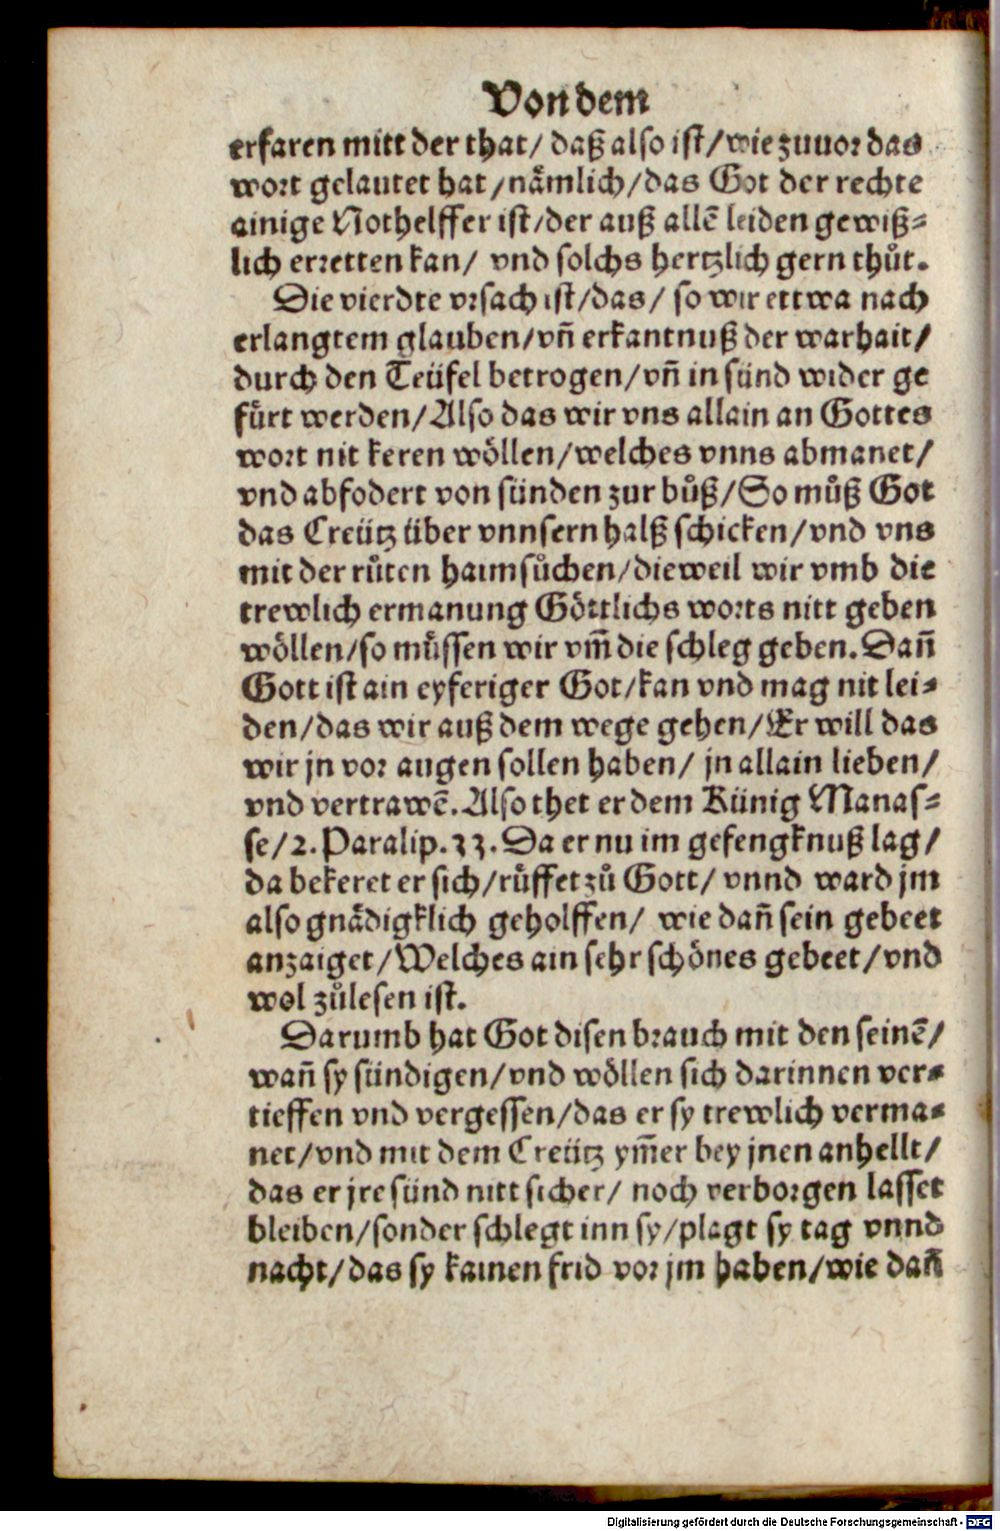 Von dem
erfaren mitt der that/ daß also ist/wie zuuor das
wort gelautet hat/nämlich/das Got der rechte
ainige Nothelffer ist/der auß allē leiden gewiß⸗
lich erretten kan/ vnd solchs hertzlich gern thůt.
Die vierdte vrsach ist/das/ so wir ettwa nach
erlangtem glauben/vñ erkantnuß der warhait/
durch den Teüfel betrogen/vñ in sünd wider ge
fůrt werden/Also das wir vns allain an Gottes
wort nit keren wöllen/welches vnns abmanet/
vnd abfodert von sünden zur bůß/So můß Got
das Creütz über vnnsern halß schicken/vnd vns
mit der růten haimsůchen/dieweil wir vmb die
trewlich ermanung Göttlichs worts nitt geben
wöllen/so müssen wir vm̄ die schleg geben. Dañ
Gott ist ain eyferiger Got/kan vnd mag nit lei⸗
den/das wir auß dem wege gehen/Er will das
wir jn vor augen sollen haben/ jn allain lieben/
vnd vertrawē. Also thet er dem Künig Manas⸗
se/2. Paralip. 33. Da er nu im gefengknuß lag/
da bekeret er sich/růffet zů Gott/ vnnd ward jm
also gnädigklich geholffen/ wie dañ sein gebeet
anzaiget/Welches ain sehr schönes gebeet/vnd
wol zůlesen ist.
Darumb hat Got disen brauch mit den seinē/
wañ sy sündigen/vnd wöllen sich darinnen ver⸗
tieffen vnd vergessen/das er sy trewlich verma⸗
net/vnd mit dem Creütz ym̄er bey jnen anhellt/
das er jre sünd nitt sicher/ noch verborgen lasset
bleiben/sonder schlegt inn sy/plagt sy tag vnnd
nacht/das sy kainen frid vor jm haben/wie dañ
Digitalisierung gefördert durch die Deutsche Forschungsgemeinschaft - DFG